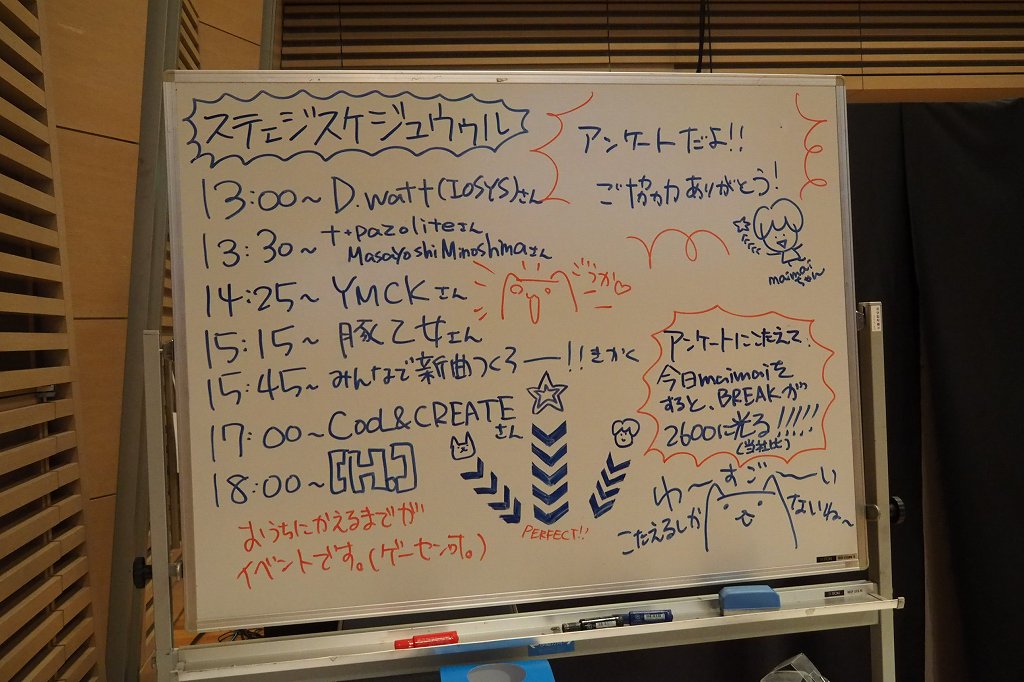 ステェジスケジュウゥル
13:00~ D.watt(IOSYS)さん
13:30~ t+pazoliteさん
MasayoshiMinoshimaさん
14:25~ YMCKさん
15:15~ 豚乙女さん
15:45~ みんなで新曲つくろー!!きかく
17:00~ Cool&CREATE
さん
18:00~ [H.]
おうちにかえるまでが
イベントです。(ゲーセン可。)
PERFECT!!
アンケートだよ!!
ご協力ありがとう!
maimai
ちゃん
アンケートにこたえて、
今日maimaiを
すると、BREAKが
2600に光る!!!!!
(当社比)
わ~すご~い
こたえるしか
ないね~